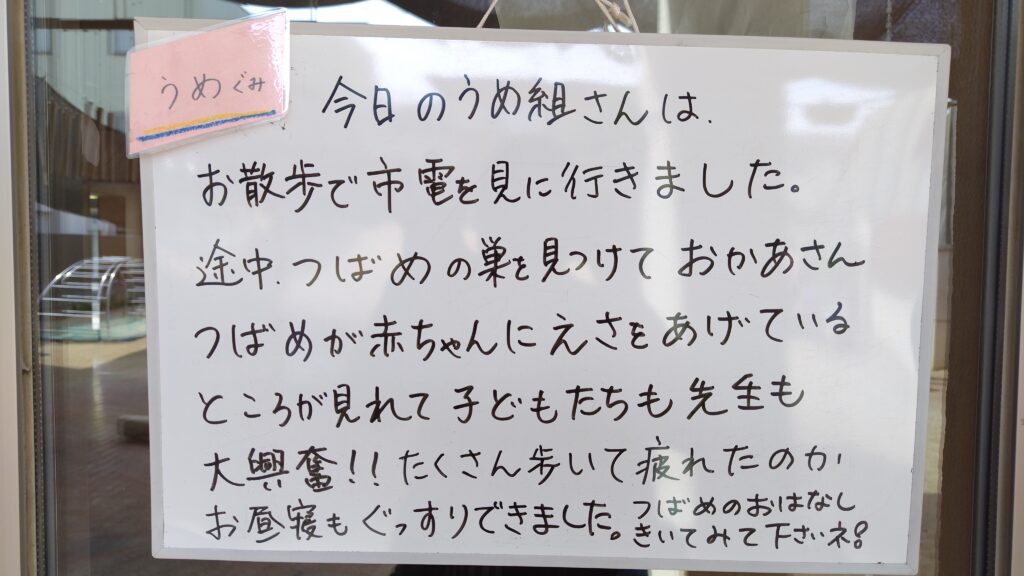 うめぐみ
今日のうめ組さんは、
お散歩で市電を見に行きました。
途中、つばめの巣を見つけて おかあさん
つばめが赤ちゃんにえさをあげている
ところが見れて 子どもたちも 先生も
大興奮!! たくさん歩いて疲れたのか
お昼寝もぐっすりできました。
つばめのおはなし
きいてみて下さいネ!